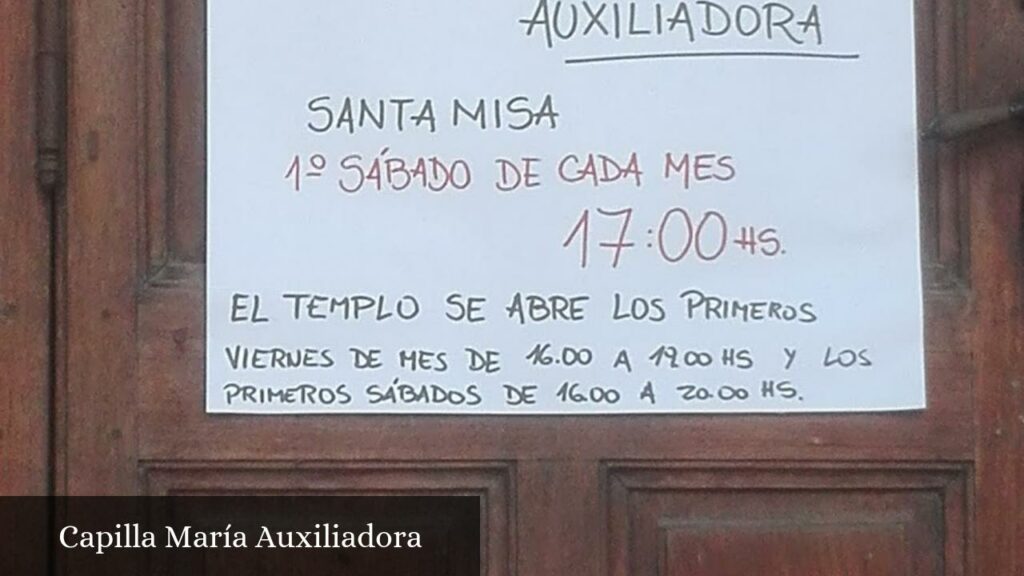 AUXILIADORA
SANTA MISA
1º SÁBADO DE CADA MES
17:00 HS.
EL TEMPLO SE ABRE LOS PRIMEROS
VIERNES DE MES DE 16.00 A 19.00 HS Y LOS
PRIMEROS SÁBADOS DE 16.00 A 20.00 HS.
Capilla María Auxiliadora